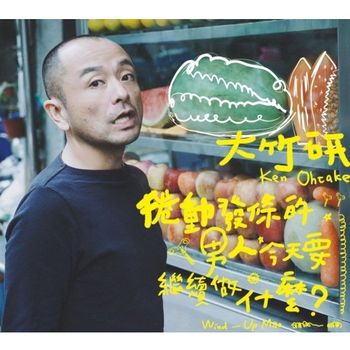 大竹研
Ken Ohtake
捲動發條的
男人今天要
繼續做什麼?
Wind-Up Man